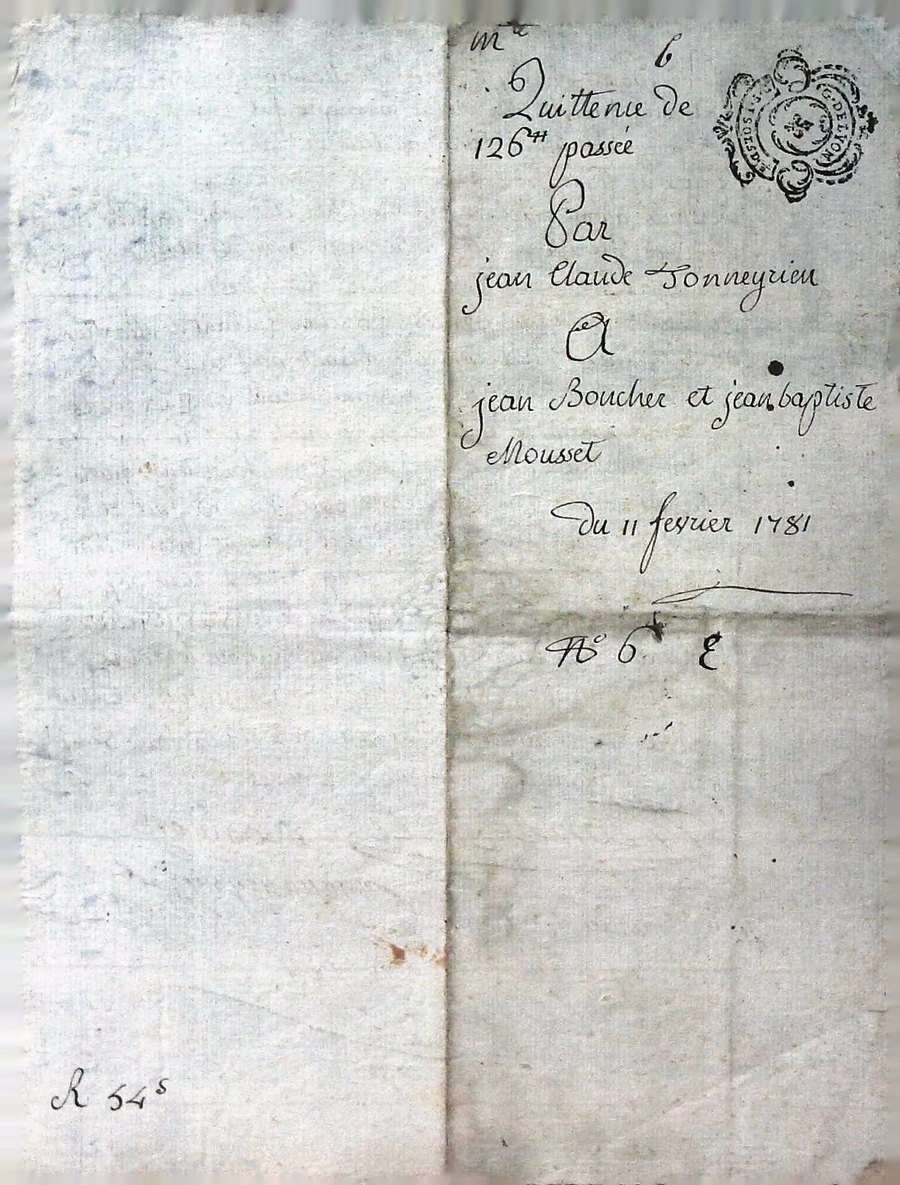 mre
6
Quittence de
126tt passée
Par
jean Claude Tonneyrieu
A
jean Boucher et jean baptiste
Mousset
du 11 fevrier 1781
No 6. E
R 54s